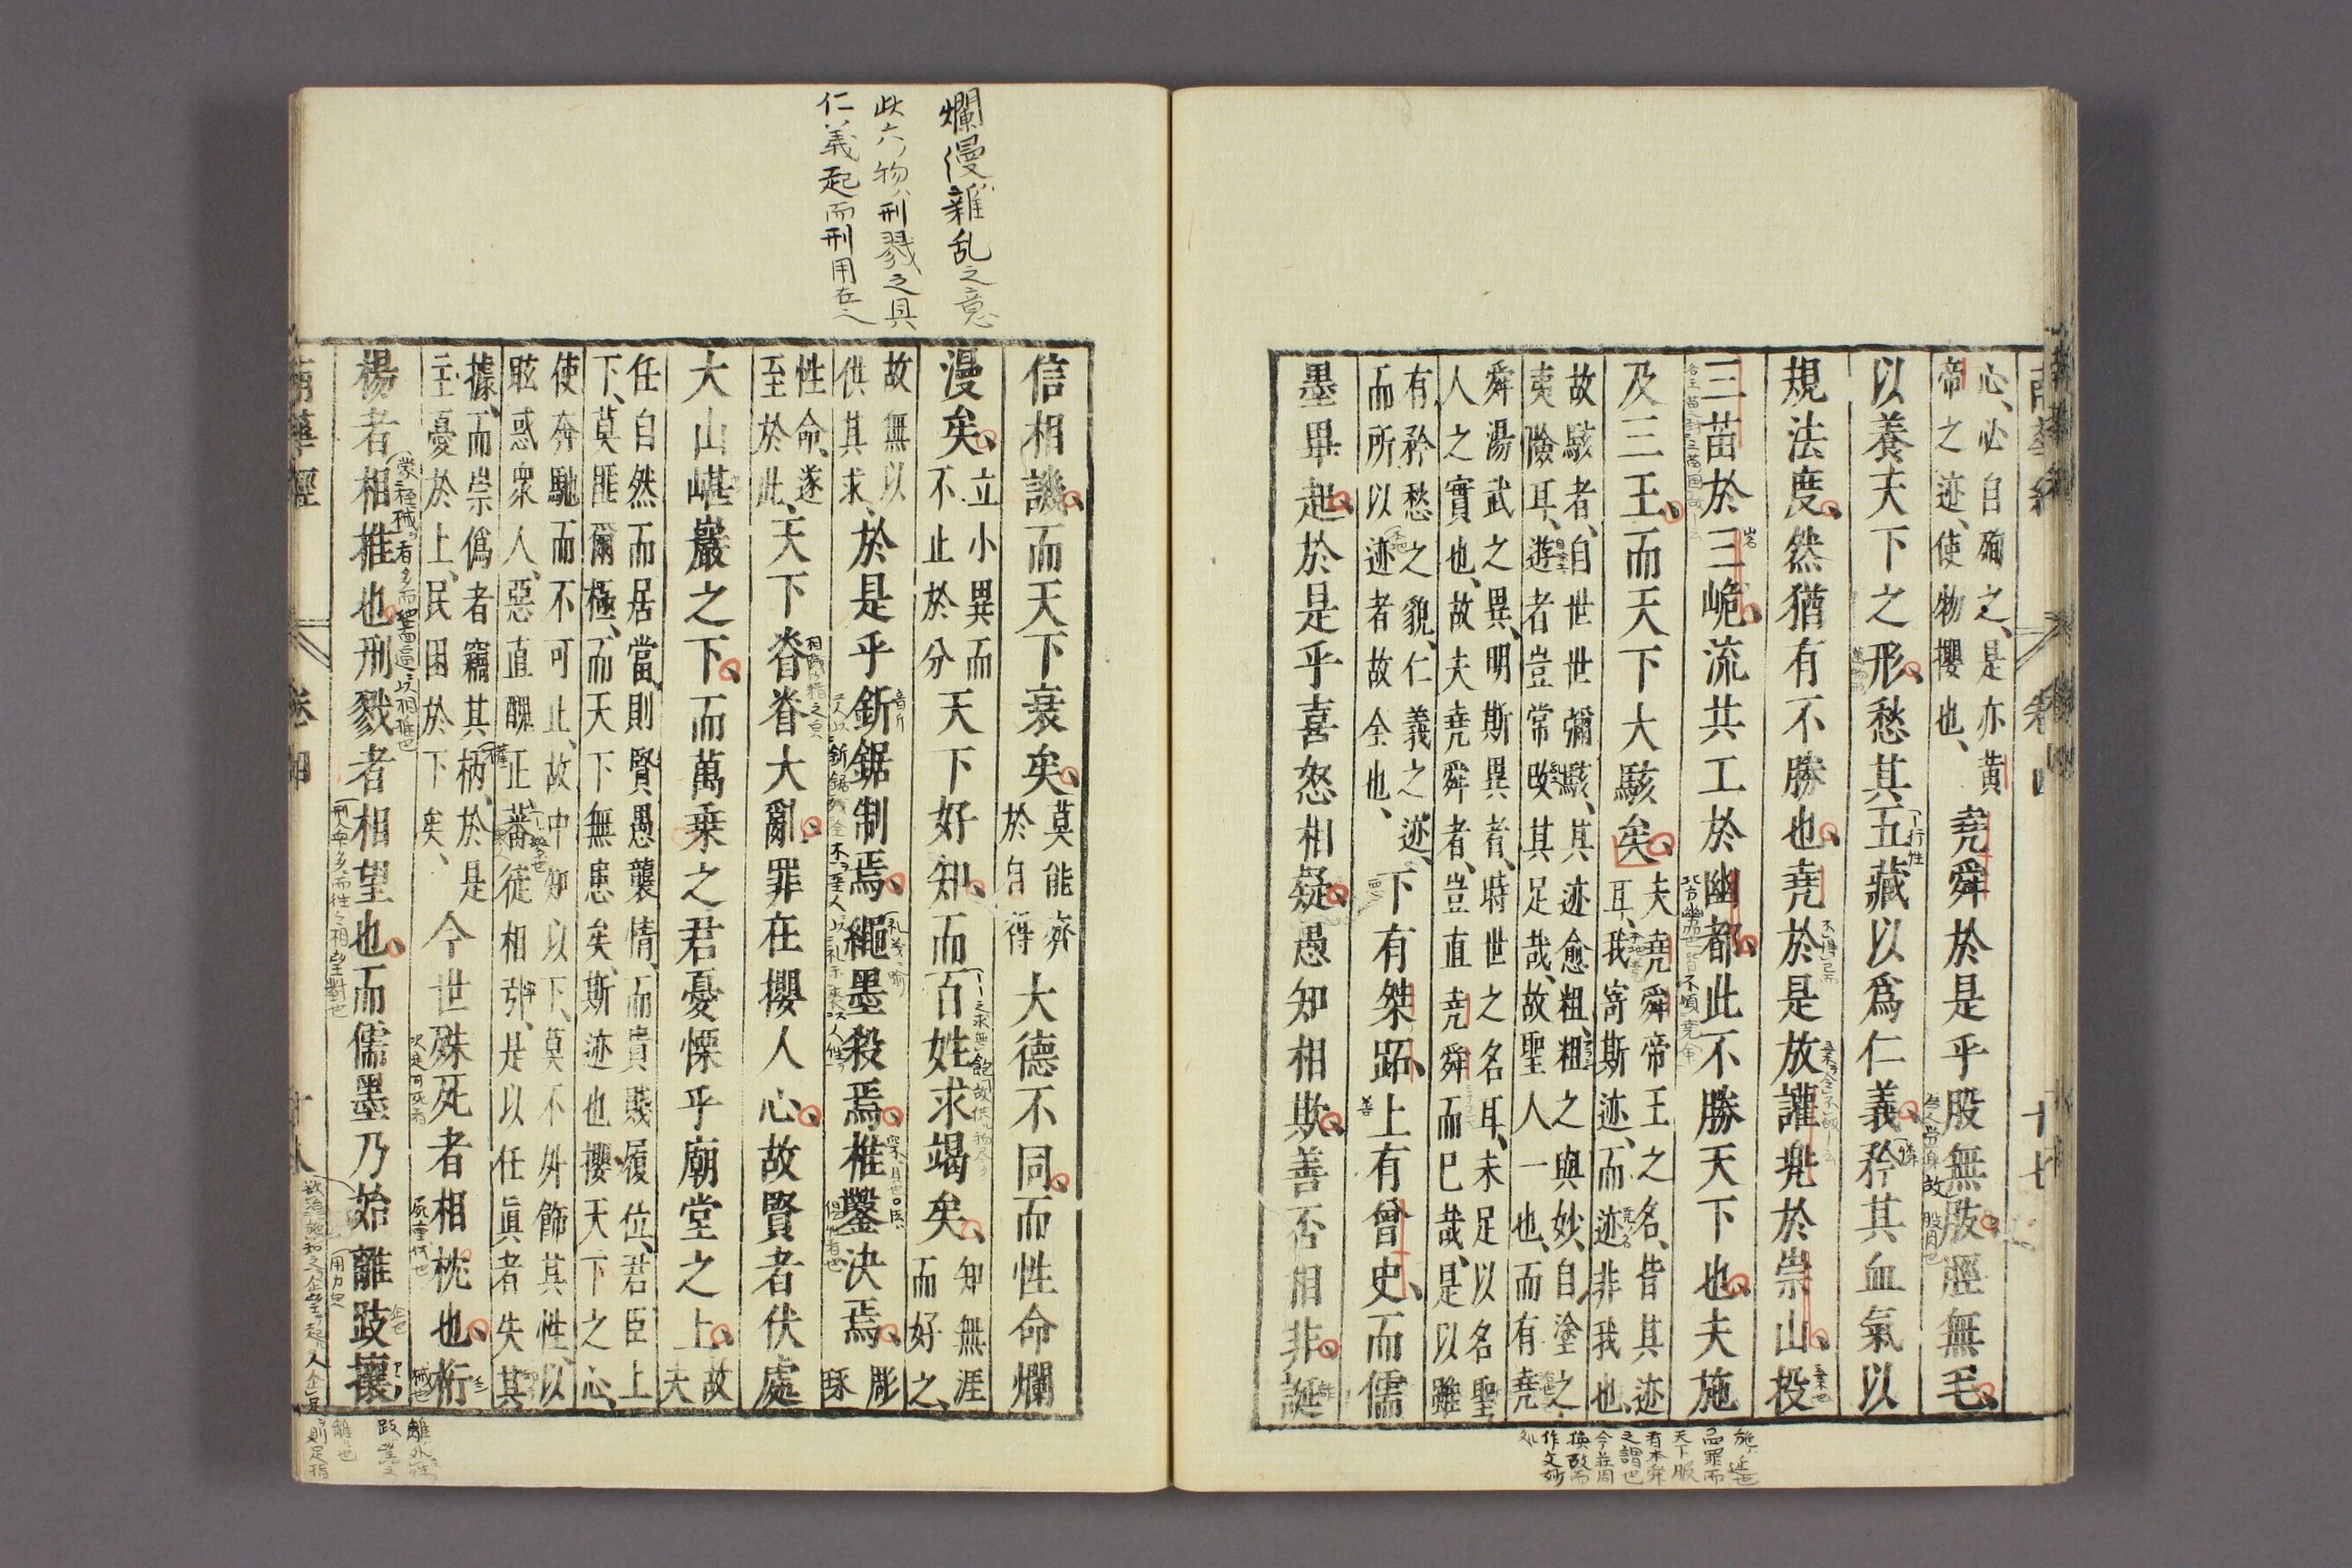 南華經 卷四 十七
心、必自殉之、是亦黄
帝之迹、使物攖也、
堯舜於是乎股無胈脛無毛、
以養天下之形、愁其五藏以爲仁義矜其血氣以
規法度、然猶有不勝也、堯於是放讙兜於崇山、投
三苗於三峗、流共工於幽都、此不勝天下也、夫施
及三王、而天下大駭矣、
夫堯舜帝王之名、皆其迹
耳、我寄斯迹、而迹非我也、
故駭者、自世世彌駭、其迹愈粗、粗之與妙、自塗之
夷險耳、遊者豈常改其足哉、故聖人一也、而有堯
舜湯武之異、明斯異者、時世之名耳、未足以名聖
人之實也、故夫堯舜者、豈直堯舜而已哉、是以雖
有矜愁之貌、仁義之迹、
而所以迹者故全也、
下有桀跖、上有曾史、而儒
墨畢起、於是乎喜怒相疑、愚知相欺、善否相非、誕
施、延也
天下服
有本舜
之謂也
今莊周
換改而
作文妙
爛漫雜乱之意
此六物、刑戮之具
仁義起而刑用在
信相譏、而天下衰矣、
莫能齊
於自得
大德不同、而性命爛
漫矣、
立小異而
不止於分
天下好知、而百姓求竭矣、
知無涯
而好之、
故無以
供其求、
於是乎釿鋸制焉、繩墨殺焉、椎鑿決焉、
彫
琢
性命、遂
至於此、
天下脊脊大亂、罪在攖人心、故賢者伏處
大山嵁巖之下、而萬乗之君憂慄乎廟堂之上、
故
夫
任自然而居當、則賢愚襲情、而貴賤履位、君臣上
下、莫匪爾極、而天下無患矣、斯迹也攖天下之心、
使奔馳而不可止、故中知以下、莫不外飾其性、以
眩惑衆人、惡直醜正、蕃徒相引、是以任眞者失其
據、而崇僞者竊其柄、於是
主憂於上、民困於下矣、
今世殊死者相枕也、桁
楊者相推也、刑戮者相望也、而儒墨乃始離跂攘
南華經 卷四 十八